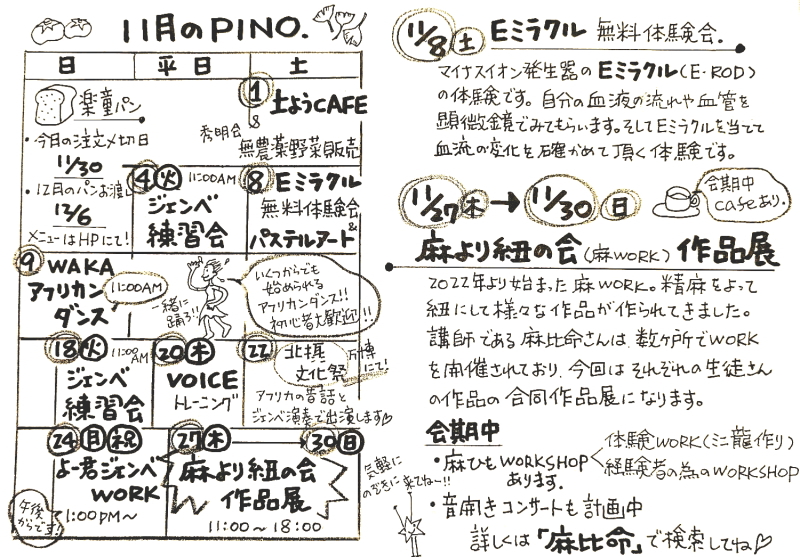 11月のPINO.
日 平日 土
楽童パン
・今月の注文〆切日
11/30
・12月のパンお渡し
12/6
メニューはHPにて!
1
土ようCAFE
&
秀明会
無農薬野菜販売
4 火 11:00AM
ジェンベ
練習会
8 Eミラクル
無料体験会
&
パステルアート
9 WAKA
アフリカン
ダンス
11:00AM
一緒に
踊ろう!!
いくつからでも
始められる
アフリカンダンス!!
初心者大歓迎!!!
18 火 11:00AM
ジェンベ
練習会
20 木
VOICE
トレーニング
22 北摂
文化祭
万博
にて!
アフリカの昔話と
ジェンベ演奏で出演します♡
24 月 祝
よー君ジェンベ
WORK
1:00PM〜
午後
からです!
27 木 → 30 日
麻より紐の会
作品展
11:00〜18:00
気軽に
のぞきに来てね〜!!
11/8 土 Eミラクル 無料体験会.
マイナスイオン発生器のEミラクル(E・ROD)
の体験です。自分の血液の流れや血管を
顕微鏡でみてもらいます。そしてEミラクルを当てて
血流の変化を確かめて頂く体験です。
11/27 木 → 11/30 日
会期中
caseあり.
麻より紐の会(麻WORK) 作品展
2022年より始まった麻WORK。精麻をよって
紐にして様々な作品が作られてきました。
講師である麻比命さんは、数ヶ所でWORK
を開催されており、今回はそれぞれの生徒さん
の作品の合同作品展になります。
会期中
・麻ひもWORKSHOP
あります。
体験WORK(ミニ龍作り)
経験者の為のWORKSHOP
・音開きコンサートも計画中
詳しくは「麻比命」で検索してね♡